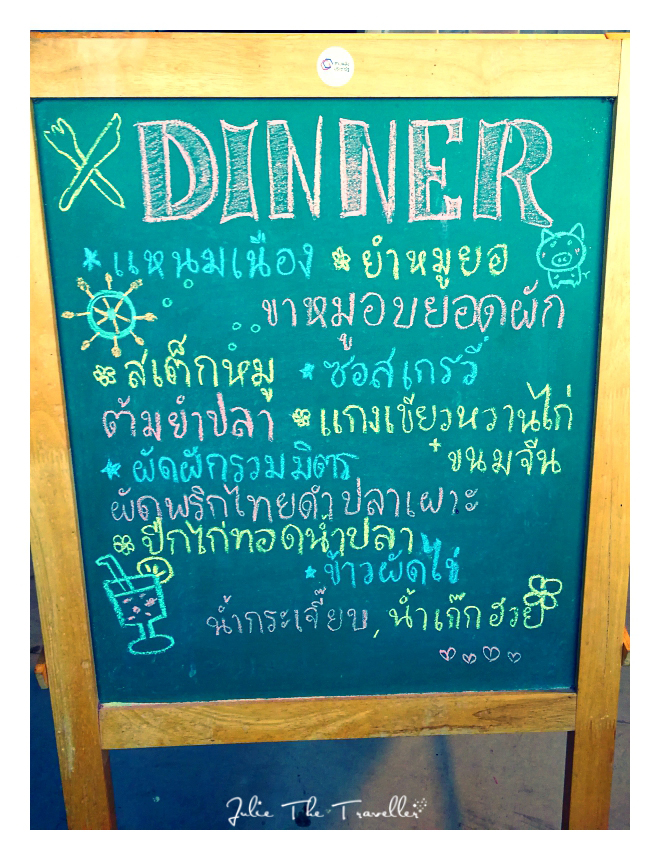 DINNER
แหนมเนือง ยำหมูยอ
ขาหมูอบยอดผัก
สเต็กหมู ซอสเกรวี่
ต้มยำปลา แกงเขียวหวานไก่
+ ขนมจีน
ผัดผักรวมมิตร
ผัดพริกไทยดำปลาเผาะ
ปีกไก่ทอดน้ำปลา
ข้าวผัดไข่
น้ำกระเจี๊ยบ, น้ำเก๊กฮวย
Julie The Traveller